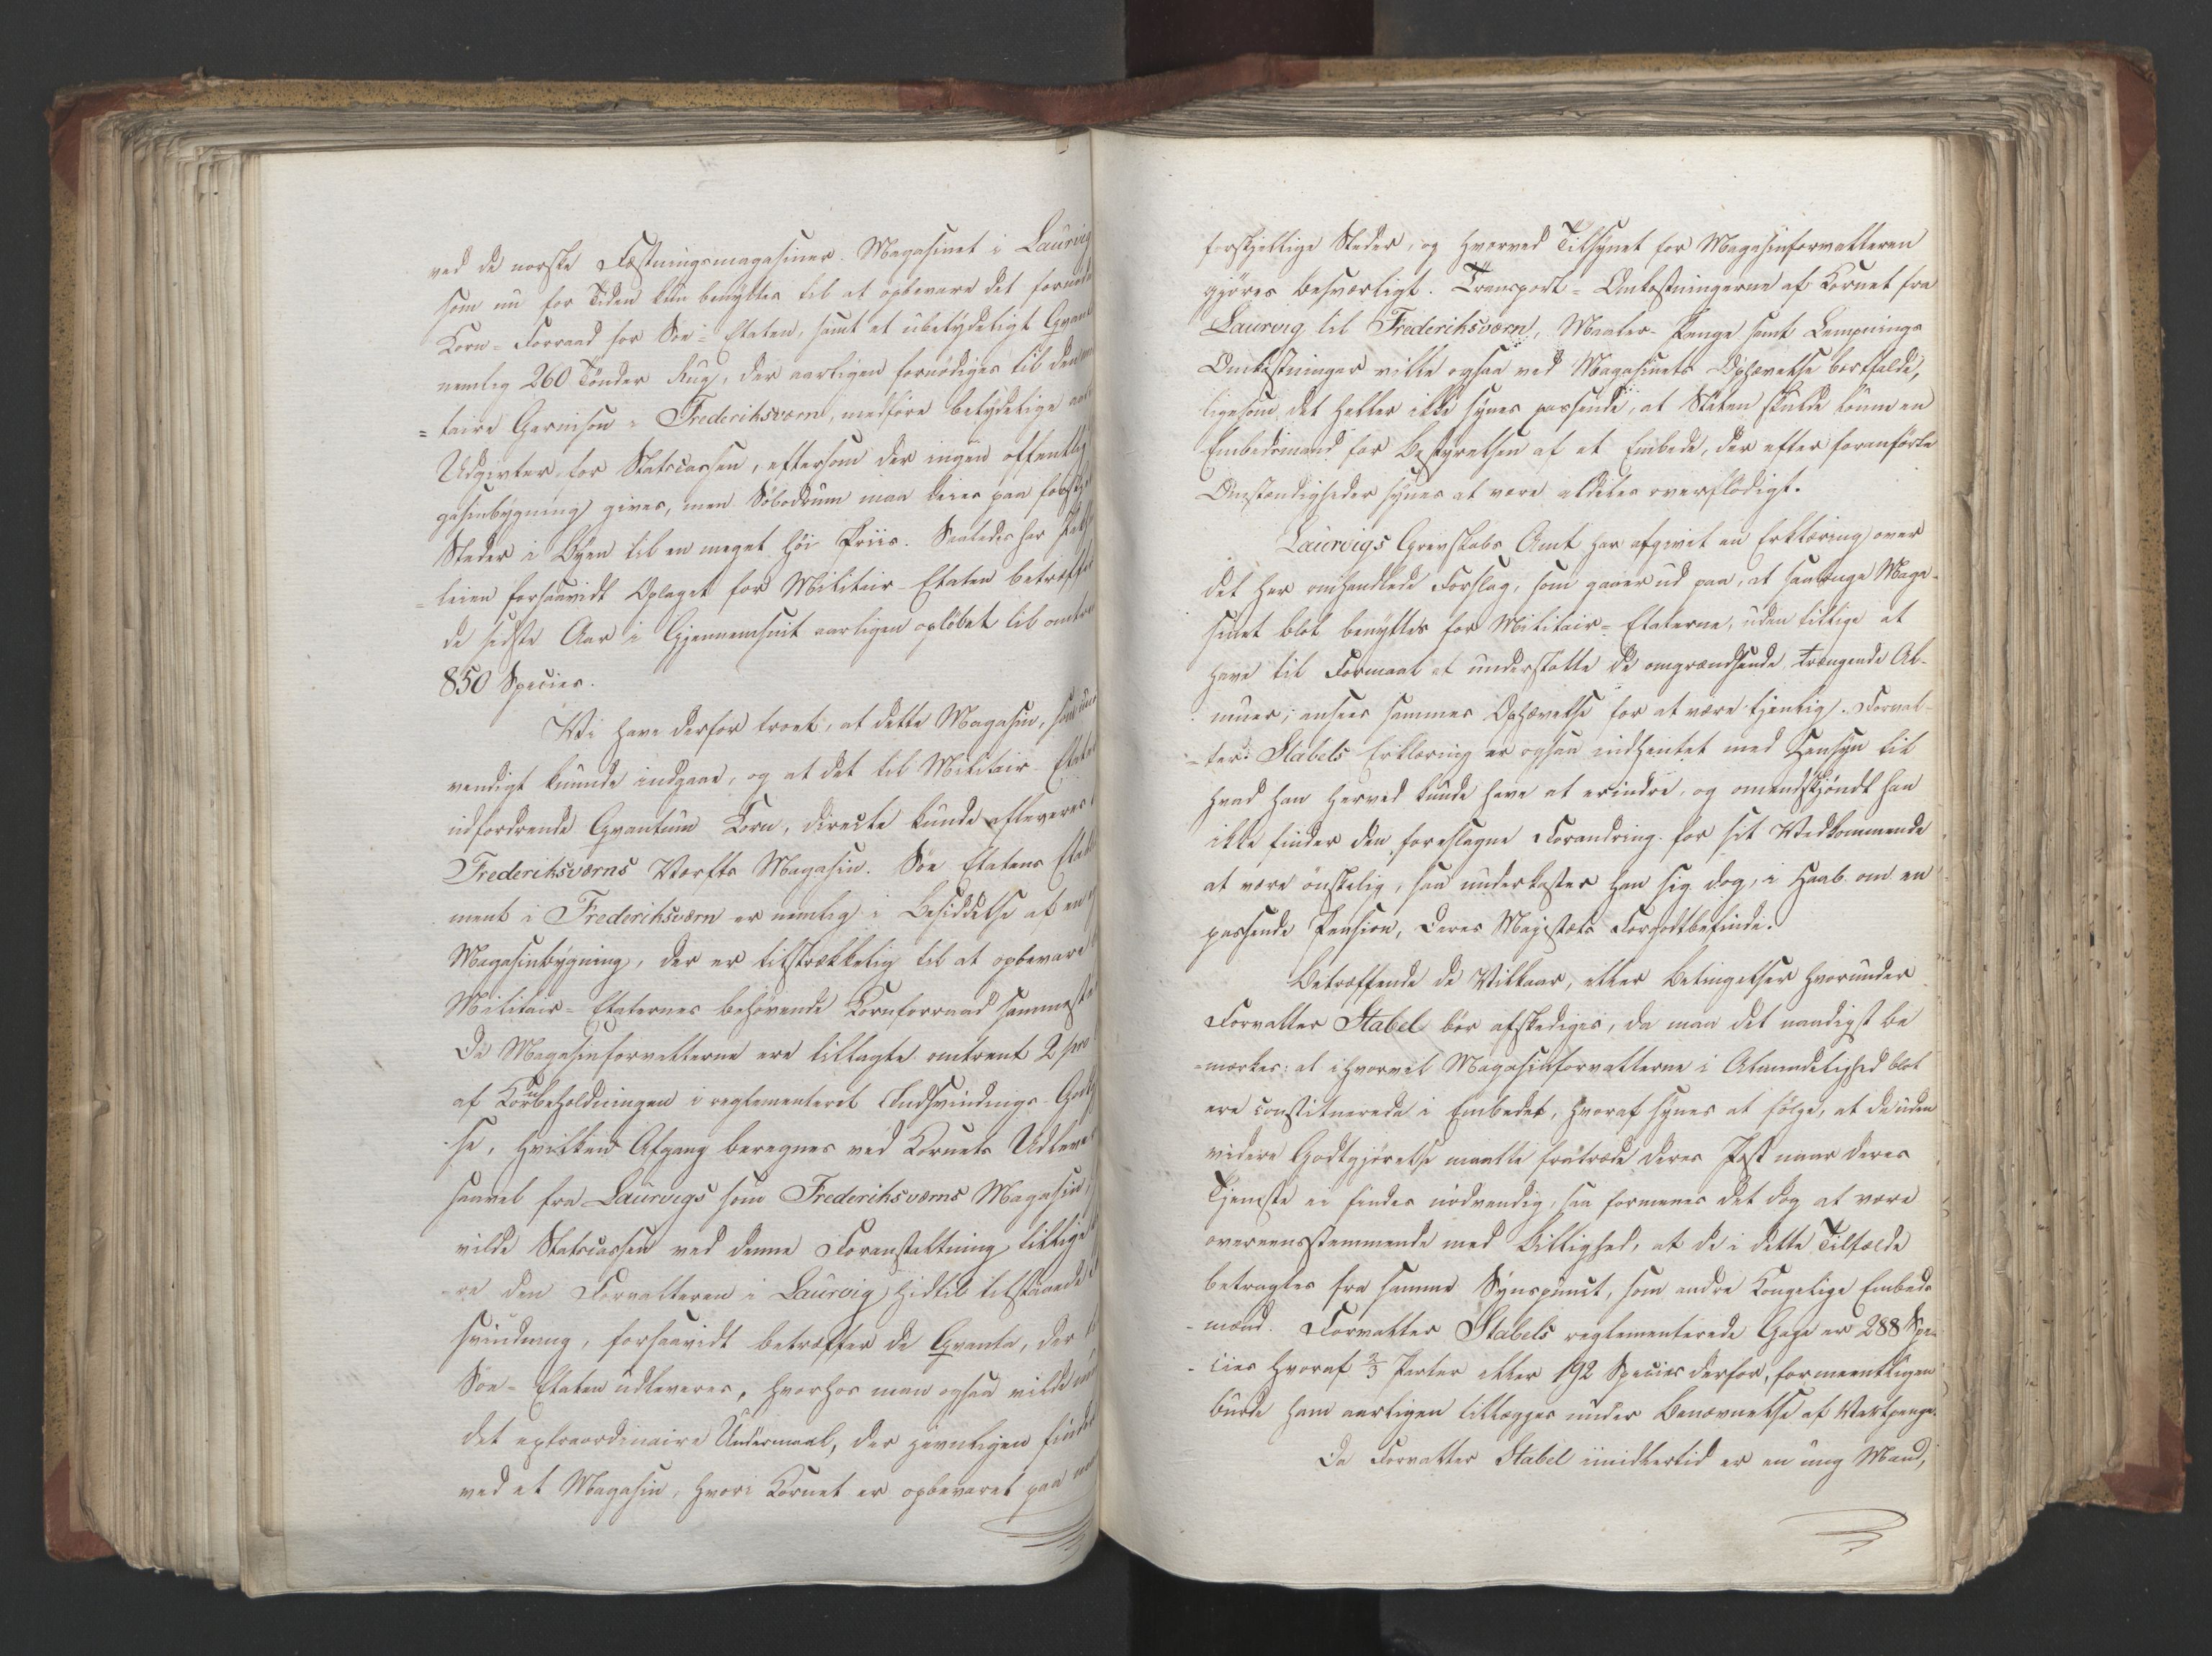 ved de norske Fæstningsmagasiner. Magasinet i Laurvig
som nu for Tiden kun benyttes til at opbevare det fornødne
Korn=Forraad for Søe=Etaten, samt et ubetydeligt Qvant
nemlig 260 Tønder Rug, der aarligen fornødiges til den
=taire Garnison i Frederiksværn, medføre betydelige
Udgivter for Statscassen, eftersom der ingen offentlig
gasinbygning gives, men Søbodrum maa leies paa forskjel
Steder i Byen til en meget høi Priis. Saaledes har
=leien forsaavidt Oplaget for Militair-Etaten betræffer
de sidste Aar i Gjennemsnit aarligen opløbet til omtrent
850 Species.
Vi have derfor troet, at dette Magasin, som
vendigt kunde indgaae, og at det til Militair-Etaten
udfordrende Qvantum Korn, directe kunde afleveres
Frederiksværns Værfts Magasin. Søe Etatens
ment i Frederiksværn er nemlig i Besiddelse af en
Magasinbygning, der er tilstrækkelig til at opbevare
Militair=Etaternes behøvende Kornforraad sammesteds
Da Magasinforvalterne ere tillagte omtrent 2 pro
af Kornbeholdningen i reglementeret Indsvindings-Godtgj
-se, hvilken Afgang beregnes ved Kornets Udlevering
saavel fra Laurvigs som Frederiksværns Magasin,
vilde Statscassen ved denne Foranstaltning tillige
re den Forvalteren i Laurvig hidtil tilstaaede
svindning, forsaavidt betræffer de Qvanta, der
Søe-Etaten udleveres, hvorhos man ogsaa vilde
det extraordinaire Undermaal, der jevnligen finder
ved et Magasin, hvori Kornet er opbevaret paa
forskjellige Steder, og hvorved Tilsynet for Magasinforvalteren
gjøres besværligt. Transport-Omkostningerne af Kornet fra
Laurvig til Frederiksværn, Maaler-Penge samt Lempnings
Omkostninger ville ogsaa ved Magasinets Ophævelse bortfalde,
ligesom det heller ikke synes passende, at Staten skulde lønne en
Embedsmand for Bestyrelsen af et Embede, der efter foranførte
Omstændigheder synes at være aldeles overflødigt.
Laurvigs Grevskabs Amt har afgivet en Erklæring over
det her omhandlede Forslag, som gaaer ud paa, at saalænge Maga-
sinet blot benyttes for Militair=Etaterne, uden tillige at
have til Formaal at understøtte de omgrændsende trængende Al-
muer, ansees sammes Ophævelse for at være tjenlig. Forval-
-ter Stabels Erklæring er ogsaa indhentet med Hensyn til
hvad han herved kunde have at erindre, og omendskjøndt han
ikke finder den foreslagne Forandring for sit Vedkommende
at være ønskelig, saa underkaster han sig dog, i Haab om en
passende Pension, Deres Majestæts Forgodtbefinde.
Betræffende de Vilkaar, eller Betingelser hvorunder
Forvalter Stabel bør afskediges, da maa det naadigst be
-mærkes: at ihvorvel Magasinforvalterne i Almindelighed blot
ere constituerede i Embedet, hvoraf synes at følge, at de uden
videre Godtgjørelse maatte fratræde deres Post naar deres
Tjeneste ei findes nødvendig, saa formenes det dog at være
overeensstemmende med Billighed, at de i dette Tilfælde
betragtes fra samme Synspunct, som andre Kongelige Embeds
-mænd. Forvalter Stabels reglementerede Gage er 288 Spe-
-cies hvoraf 2/3 Parter eller 192 Species derfor, formeentligen
burde ham aarligen tillægges under Benævnelse af Vartpenge.
Da Forvalter Stabel imidlertid er en ung Mand,